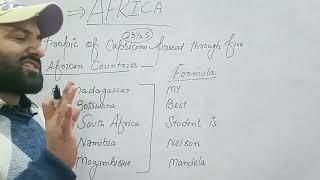 → AFRICA
(23½ S)
Tropic of Capricorn passed through five
African Countries
Formula
Madagascar My
Botswana Best
South Africa Student is
Namibia Nelson
Mozambique Mandela